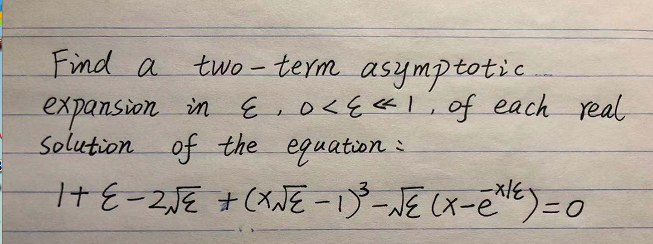 Find a two-term asymptotic
expansion in ε, 0<ε≪1, of each real
solution of the equation:
1+ε-2√ε+(x√ε-1)³-√ε(x-e^{-x/ε})=0